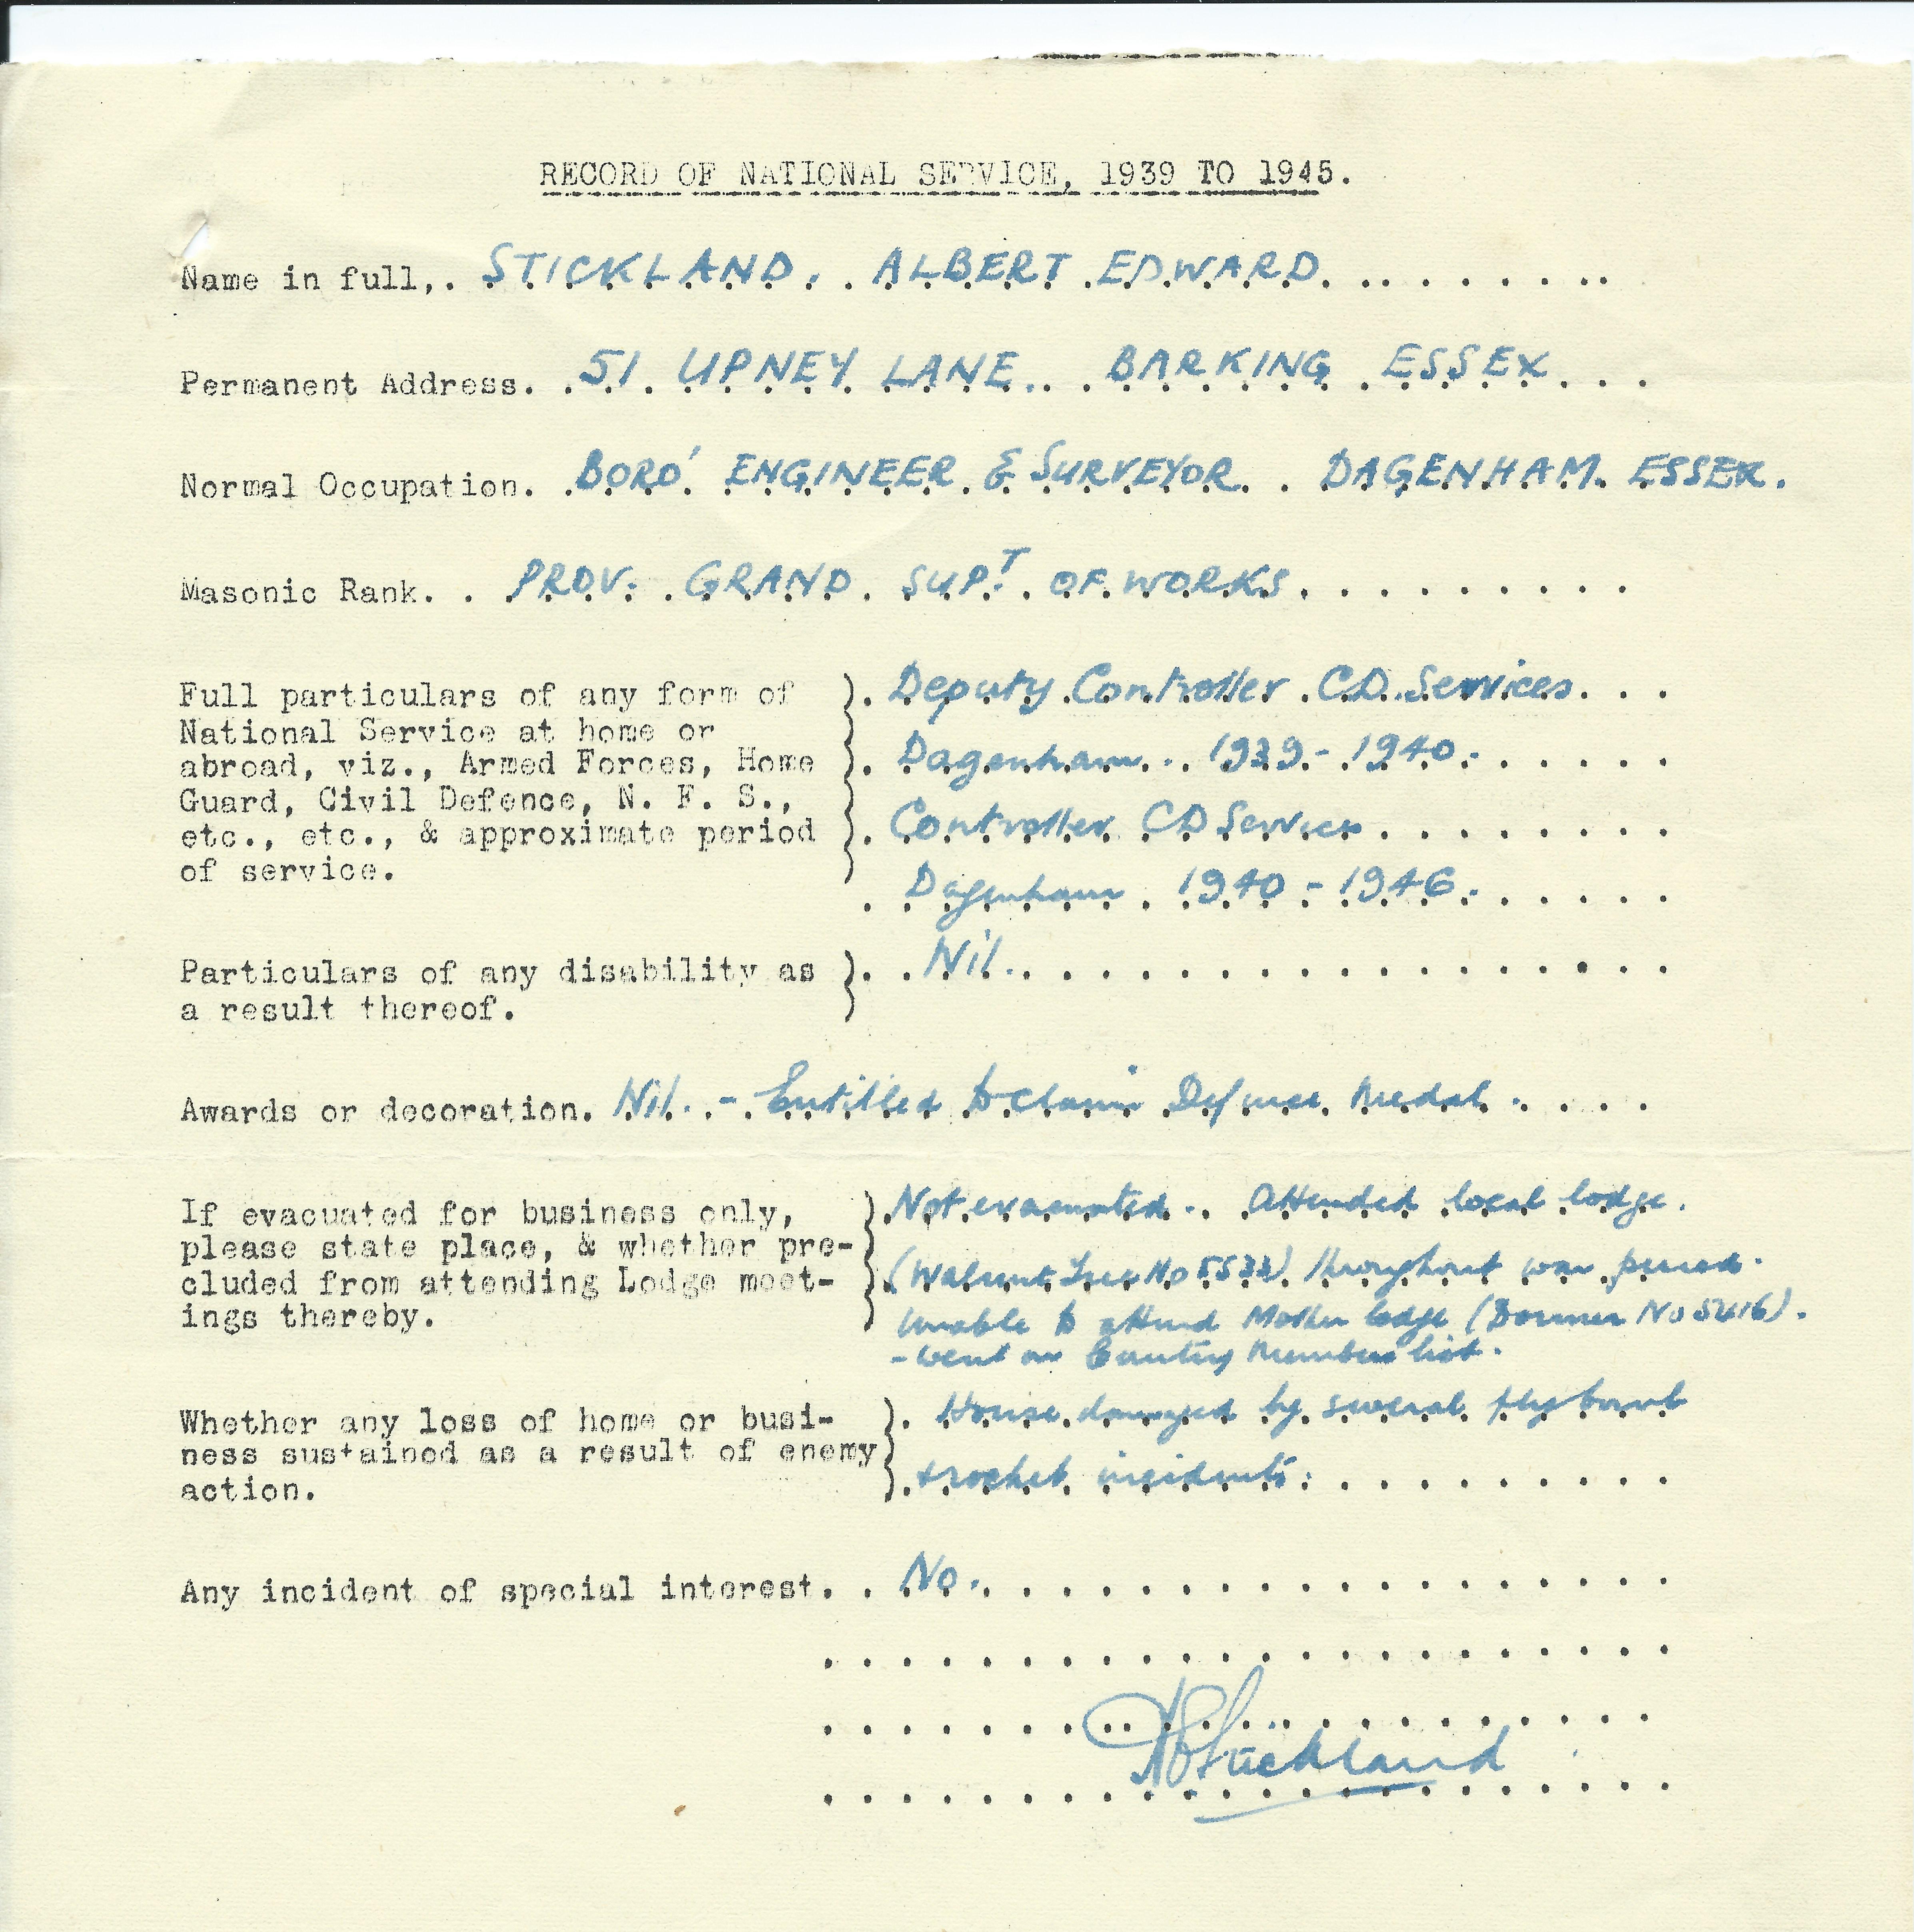 RECORD OF NATIONAL SERVICE, 1939 TO 1945.
Name in full,. STICKLAND. ALBERT EDWARD
Permanent Address. 51 UPNEY LANE. BARKING ESSEX
Normal Occupation. BORO' ENGINEER & SURVEYOR. DAGENHAM. ESSEX.
Masonic Rank. PROV. GRAND SUPT. OF WORKS
Full particulars of any form of
National Service at home or
abroad, viz., Armed Forces, Home
Guard, Civil Defence, N. F. S.,
etc., etc., & approximate period
of service.
Deputy Controller CD. Services
Dagenham. 1939 - 1940.
Controller CD Services
Dagenham 1940 - 1946.
Particulars of any disability as
a result thereof.
Nil.
Awards or decoration. Nil. - Entitled to claim Defence Medal.
If evacuated for business only,
please state place, & whether pre-
cluded from attending Lodge meet-
ings thereby.
Not evacuated. Attended local lodge.
(Walnut Tree No ) throughout war period.
Unable to attend Mother lodge (Dormer No ).
- went on Country Members list.
Whether any loss of home or busi-
ness sustained as a result of enemy
action.
House damaged by several fly bomb
& rocket incidents.
Any incident of special interest. No.
AEStickland